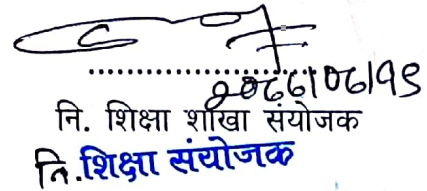 २०७८।०८।१९
नि. शिक्षा शाखा संयोजक
नि. शिक्षा संयोजक